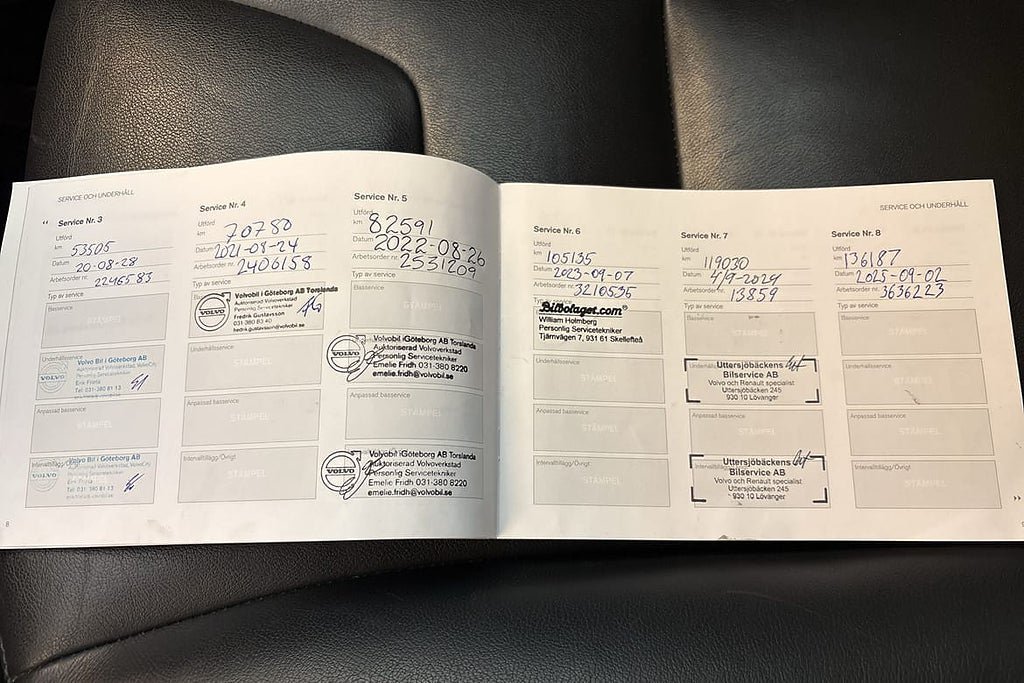 SERVICE OCH UNDERHÅLL
Service Nr. 3
Utförd
km 53505
Datum 20-08-28
Arbetsorder nr. 2246583
Typ av service
Basservice
STÄMPEL
Underhållsservice
VOLVO
Volvo Bil i Göteborg AB
Auktoriserad Volvoverkstad, VolvoCity
Personlig Servicetekniker
Erik Friska
Tel: 031-380 81 13
Anpassad basservice
STÄMPEL
Intervalltillägg/Övrigt
VOLVO
Volvo Bil i Göteborg AB
Auktoriserad Volvoverkstad, VolvoCity
Personlig Servicetekniker
Tel: 031-380 81 13
8
Service Nr. 4
Utförd
km 70780
Datum 2021-08-24
Arbetsorder nr. 2406158
Typ av service
VOLVO
Volvobil i Göteborg AB Torslanda
Auktoriserad Volvoverkstad
Personlig Servicetekniker
Fredrik Gustavsson
031-380 83 40
fredrik.gustavsson@volvobil.se
Underhållsservice
STÄMPEL
Anpassad basservice
STÄMPEL
Intervalltillägg/Övrigt
STÄMPEL
Service Nr. 5
Utförd
km 82591
Datum 2022-08-26
Arbetsorder nr. 2531209
Typ av service
Basservice
STÄMPEL
VOLVO
Volvobil i Göteborg AB Torslanda
Auktoriserad Volvoverkstad
Personlig Servicetekniker
Emelie Fridh 031-380 8220
emelie.fridh@volvobil.se
Anpassad basservice
STÄMPEL
VOLVO
Volvobil i Göteborg AB Torslanda
Auktoriserad Volvoverkstad
Personlig Servicetekniker
Emelie Fridh 031-380 8220
emelie.fridh@volvobil.se
SERVICE OCH UNDERHÅLL
Service Nr. 6
Utförd
km 105135
Datum 2023-09-07
Arbetsorder nr. 3210535
Bilbolaget.com®
William Holmberg
Personlig Servicetekniker
Tjärnvägen 7, 931 61 Skellefteå
Underhållsservice
STÄMPEL
Anpassad basservice
STÄMPEL
Intervalltillägg/Övrigt
STÄMPEL
Service Nr. 7
Utförd
km 119030
Datum 4/9-2024
Arbetsorder nr. 13859
Typ av service
Basservice
STÄMPEL
Uttersjöbäckens
Bilservice AB
Volvo och Renault specialist
Uttersjöbäcken 245
930 10 Lövånger
Anpassad basservice
STÄMPEL
Uttersjöbäckens
Bilservice AB
Volvo och Renault specialist
Uttersjöbäcken 245
930 10 Lövånger
Service Nr. 8
Utförd
km 136187
Datum 2025-09-02
Arbetsorder nr. 3636223
Typ av service
Basservice
STÄMPEL
Underhållsservice
STÄMPEL
Anpassad basservice
STÄMPEL
Intervalltillägg/Övrigt
STÄMPEL